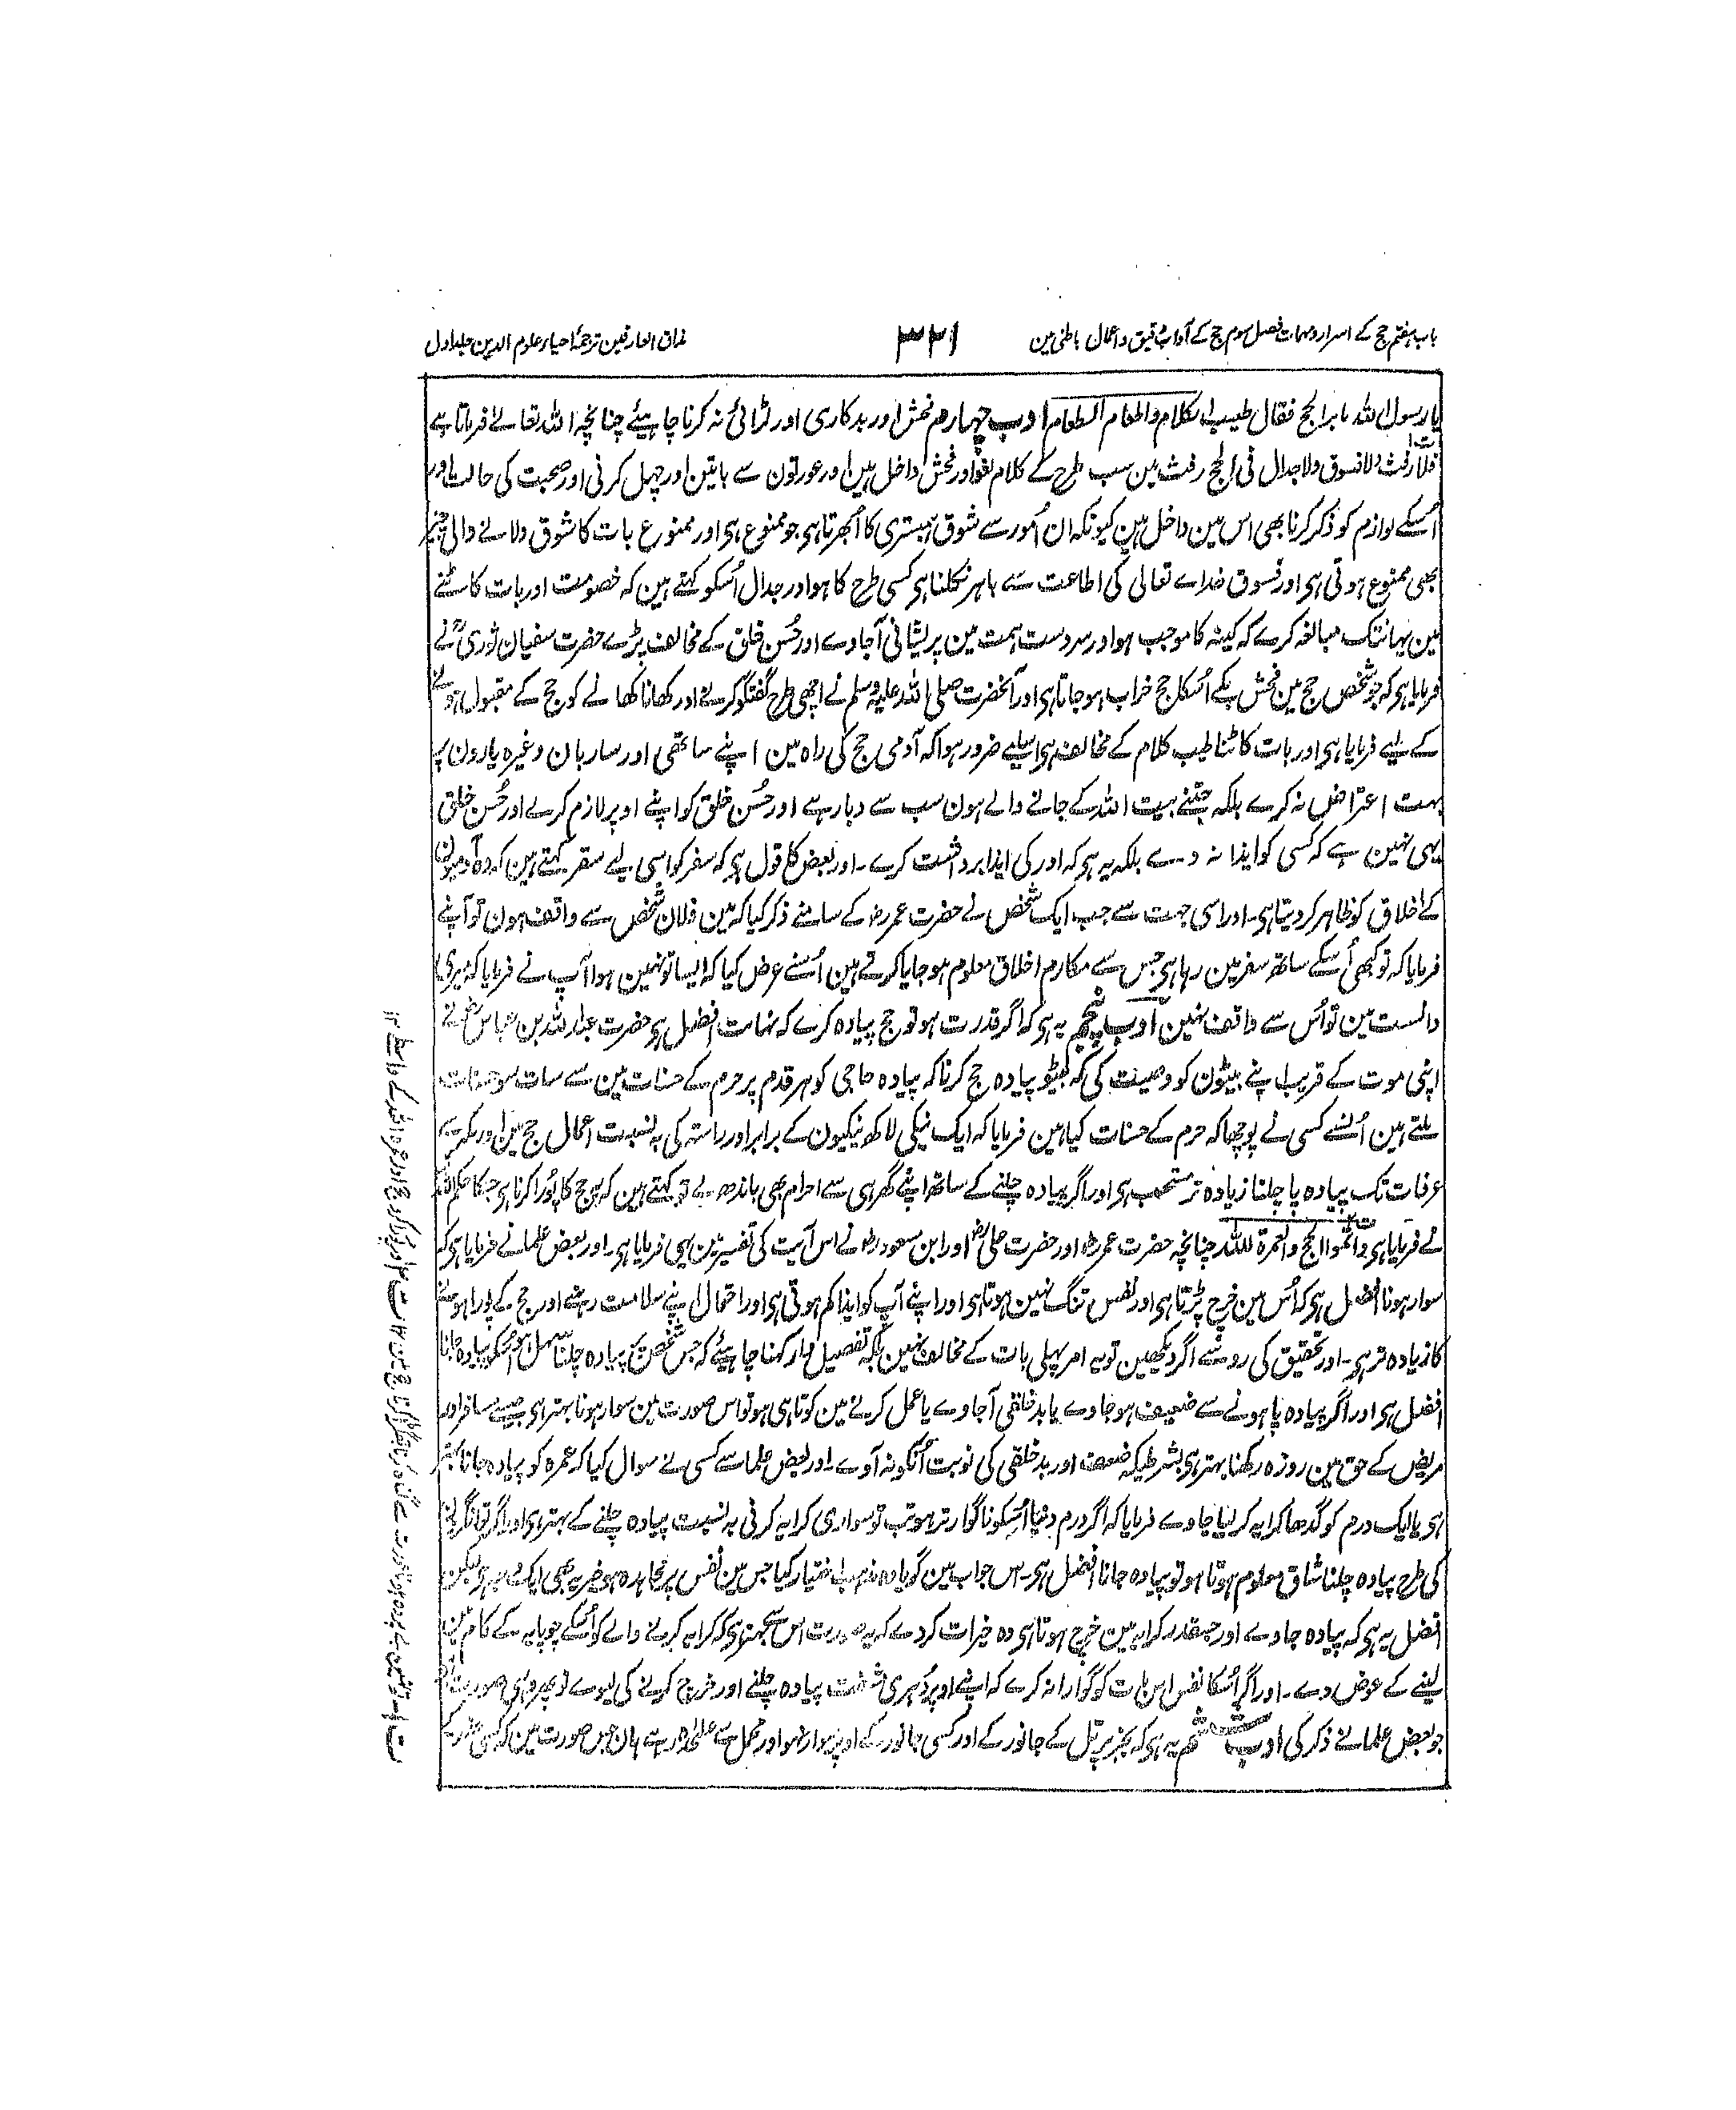 باب ہفتم حج کے اسرار و مہمات فصل سوم حج کے آداب دقیق و اعمال باطنی مین
۳۲۱
مذاق العارفین ترجمۂ احیاء علوم الدین جلد اول
یا رسول اللہ ما بر الحج فقال طیب الکلام واطعام الطعام ادب چہارم فحش اور بدکاری اور لڑائی نہ کرنا چاہیئے چنانچہ اللہ تعالے فرماتا ہے
فلا رفث ولا فسوق ولا جدال فی الحج رفث مین سب طرح کے کلام لغو اور فحش داخل ہین اور عورتون سے باتین اور چہل کرنی اور صحبت کی حالت اور
اُسکے لوازم کو ذکر کرنا بھی اس مین داخل ہین کیونکہ ان اُمور سے شوق ہمبستری کا اُبھرتا ہی جو ممنوع ہی اور ممنوع بات کا شوق دلانے والی چیز
بھی ممنوع ہوتی ہی اور فسوق خداے تعالی کی اطاعت سے باہر نکلنا ہی کسی طرح کا ہو اور جدال اُسکو کہتے ہین کہ خصومت اور بات کاٹنے
مین یہانتک مبالغہ کرے کہ کینہ کا موجب ہو اور سردست ہمت مین پریشانی آجاوے اور حُسن خلق کے مخالف پڑے حضرت سفیان ثوری نے
فرمایا ہی کہ جو شخص حج مین فحش بکے اُسکا حج خراب ہو جاتا ہی اور آنحضرت صلی اللہ علیہ وسلم نے اچھی طرح گفتگو کرنے اور کھانا کھانے کو حج کے مقبول ہونے
کے لیے فرمایا ہی اور بات کاٹنا طیب کلام کے مخالف ہی اسلیے ضرور ہوا کہ آدمی حج کی راہ مین اپنے ساتھی اور ساربان وغیرہ یارون پر
بہت اعتراض نہ کرے بلکہ جتنے بیت اللہ کے جانے والے ہون سب سے دبا رہے اور حُسن خلق کو اپنے اوپر لازم کرے اور حُسن خلق
یہی نہین ہے کہ کسی کو ایذا نہ دے بلکہ یہ ہی کہ اور کی ایذا برداشت کرے۔ اور بعض کا قول ہی کہ سفر کو اسی لیے سفر کہتے ہین کہ وہ آدمیون
کے اخلاق کو ظاہر کر دیتا ہی۔ اور اسی جہت سے جب ایک شخص نے حضرت عمرؓ کے سامنے ذکر کیا کہ مین فلان شخص سے واقف ہون تو آپنے
فرمایا کہ تو کبھی اُسکے ساتھ سفر مین رہا ہی جس سے مکارم اخلاق معلوم ہو جایا کرتے ہین اُسنے عرض کیا کہ ایسا تو نہین ہوا آپ نے فرمایا کہ میری
دانست مین تو اُس سے واقف نہین ادب پنجم یہ ہی کہ اگر قدرت ہو تو حج پیادہ کرے کہ نہایت افضل ہی حضرت عبداللہ بن عباسؓ نے
اپنی موت کے قریب اپنے بیٹون کو وصیت کی کہ بیٹو پیادہ حج کرنا کہ پیادہ حاجی کو ہر قدم پر حرم کے حسنات مین سے سات سو حسنات
ملتے ہین اُنسے کسی نے پوچھا کہ حرم کے حسنات کیا ہین فرمایا کہ ایک نیکی لاکھ نیکیون کے برابر اور راستہ کی بہ نسبت اعمال حج مین اور مکہ سے
عرفات تک پیادہ پا چلنا زیادہ تر مستحب ہی اور اگر پیادہ چلنے کے ساتھ اپنے گھر ہی سے احرام بھی باندھ لے تو کہتے ہین کہ یہ حج کا پُورا کرنا ہی جسکا حکم اللہ
نے فرمایا ہی واتموا الحج والعمرة للہ چنانچہ حضرت عمرؓ اور حضرت علیؓ اور ابن مسعودؓ نے اس آیت کی تفسیر مین یہی فرمایا ہی۔ اور بعض علما نے فرمایا ہی کہ
سوار ہونا افضل ہی کہ اُس مین خرچ پڑتا ہی اور نفس تنگ نہین ہوتا ہی اور اپنے آپ کو ایذا کم ہوتی ہی اور احتمال اپنے سلامت رہنے اور حج کے پورا ہونے
کا زیادہ تر ہی۔ اور تحقیق کی رو سے اگر دیکھین تو یہ امر پہلی بات کے مخالف نہین بلکہ تفصیل وار کہنا چاہیئے کہ جس شخص پر پیادہ چلنا سہل ہو اُسکو پیادہ جانا
افضل ہی اور اگر پیادہ پا ہونے سے ضعیف ہو جاوے یا بدخلقی آجاوے یا عمل کرنے مین کوتاہی ہو تو اس صورت مین سوار ہونا بہتر ہی جیسے مسافر اور
مریض کے حق مین روزہ رکھنا بہتر ہی بشرطیکہ ضعف اور بدخلقی کی نوبت اُنکو نہ آوے۔ اور بعض علما سے کسی نے سوال کیا کہ عمرہ کو پیادہ جانا بہتر
ہی یا ایک درم کو گدھا کرایہ کر لیا جاوے فرمایا کہ اگر درم دینا اُسکو ناگوار تر ہو تب تو سواری کرایہ کرنی بہ نسبت پیادہ چلنے کے بہتر ہی اور اگر تونگرون
کی طرح پیادہ چلنا شاق معلوم ہوتا ہو تو پیادہ جانا افضل ہی۔ اس جواب مین گویا وہ مذہب اختیار کیا جس مین نفس پر مجاہدہ ہو خیر یہ بھی ایک وجہ ہی لیکن
افضل یہ ہی کہ پیادہ جاوے اور جسقدر کرایہ مین خرچ ہوتا ہی وہ خیرات کر دے کہ یہ صورت اس سے بہتر ہی کہ کرایہ کرنے والے کو اُسکے چوپایہ کے کام مین
لینے کے عوض دے۔ اور اگر اُسکا نفس اس بات کو گوارا نہ کرے کہ اپنے اوپر دُہری مشقت پیادہ چلنے اور خرچ کرنے کی لیوے تو پھر وہی صورت ہے
جو بعض علما نے ذکر کی ادب ششم یہ ہی کہ بجز پرتل کے جانور کے اور کسی جانور کے اوپر سوار نہو اور محمل سے علیٰحدہ رہے ہان جس صورت مین کہ کسی عذر کے